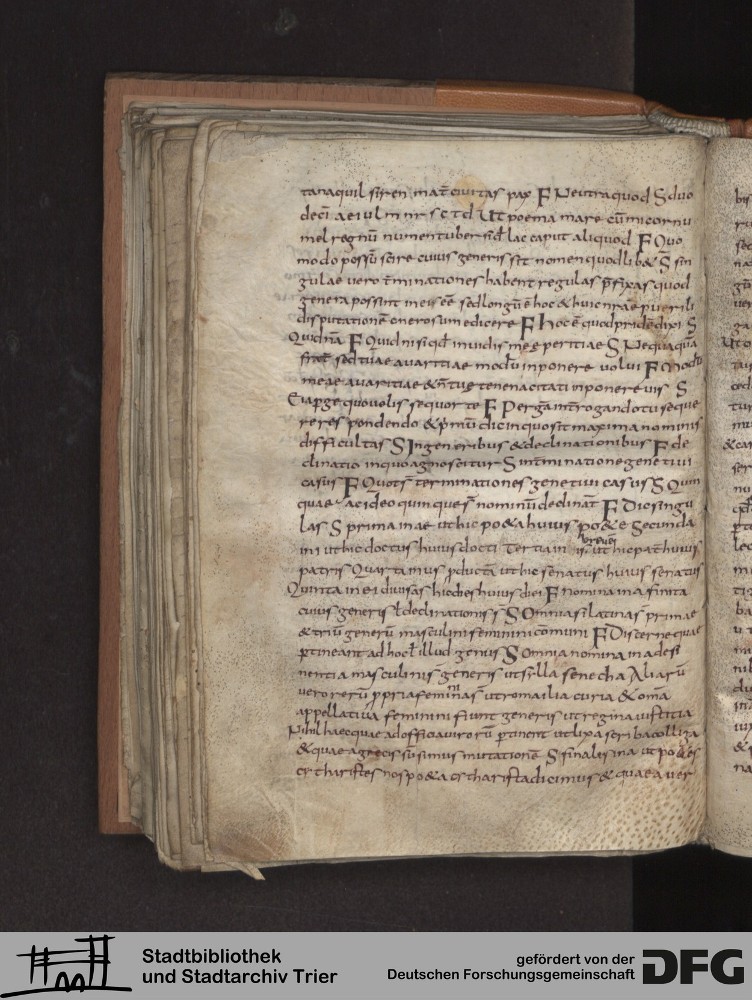 tanaquil siren mat̄ civitas pax F Neutra quod S duo
decī a e i u l m n r s c t d Ut poema mare cūmi cornu
mel regnū numen tuber sid lac caput aliquod F Quo
modo possū scire cuius generis sit nomen quodlib& S sin
gulae vero t̄minationes habent regulas p̄fixas quod
genera possint ineis eē sed longū ē hoc & huic nrāe puerili
disputationē onerosum edicere F hoc ē quod pridē dixi S
Quidnā F Quid nisi qd invidis meę peritiae S Nequaquā
frat̄ sed tuae avaritiae modū inponere volui F Modū
meae avaritiae & n̄ tuę tenenacitati inponere vis S
Eia perge quo volis sequor te F Pergā int̄rogando tu seque
re respondendo & p̄mū dic in quo sit maxima nominis
difficultas S In generibus & declinationibus F de
clinatio in quo agnoscitur S In t̄minatione genetivi
casus F Quot s̄ terminationes genetivi casus S Quin
quae ac ideo quinque s̄ nominū declinat̄ F Dic singu
las S prima in ae ut hic po&a huius po&e Secunda
in i ut hic doctus huius docti Tertia in is brevē ut hic pat̄ huius
patris Quarta in us p̄ductā ut hic senatus huius senatus
Quinta in ei divisas hic dies huius diei F nomina in a finita
cuius generis ł declinationis s̄ S Omnia si latina s̄ primae
& triū generū masculini feminini cōmuni F Discerne quae
p̄tineant ad hoc ł illud genus S Omnia nomina in a desi
nentia masculini s̄ generis ut sylla seneca Aliarū
vero rerū p̄pria feminina s̄ ut roma ilia curia & om̄a
appellativa feminini fiunt generis ut regina iustitia
Nihil haec quae ad officia virorū p̄tinent ut lixa scriba collega
& quae a grecis sūsimus mutatione S finalis in a ut po&es
cytharistes nos po&a cytharista dicimus & quae a ver
Stadtbibliothek
und Stadtarchiv Trier
gefördert von der
Deutschen Forschungsgemeinschaft
DFG